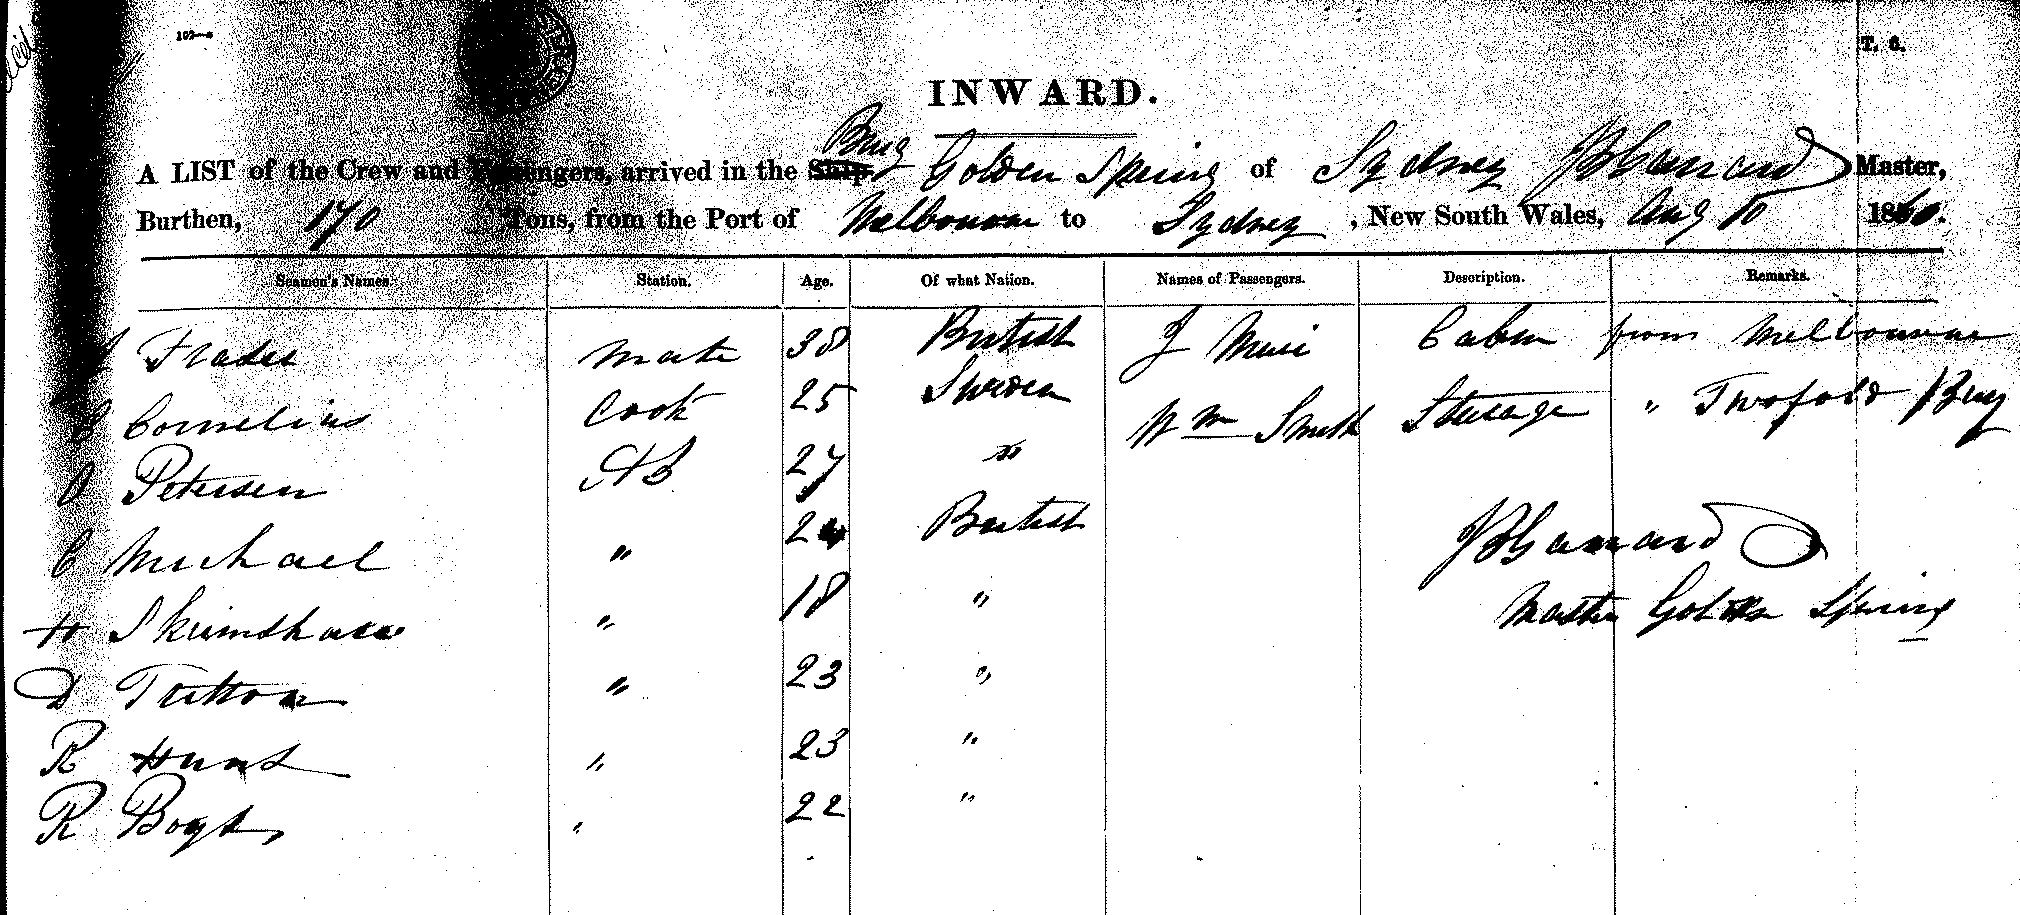 102—a
T. G.
INWARD.
Brig
A LIST of the Crew and Passengers, arrived in the Ship Golden Spring of Sydney Master,
Burthen, 170 Tons, from the Port of Melbourne to Sydney, New South Wales, Aug 10 1860.
Seamen's Names. Station. Age. Of what Nation. Names of Passengers. Description. Remarks.
Mate 38 British J Muir Cabin from Melbourne
Cornelius Cook 25 Sweden Wm Smith Steerage " Twofold Bay
Petersen AB 27 "
C Michael " 24 British
H " 18 "
Master Golden Spring
D Tritton " 23 "
R Hunt " 23 "
R " 22 "